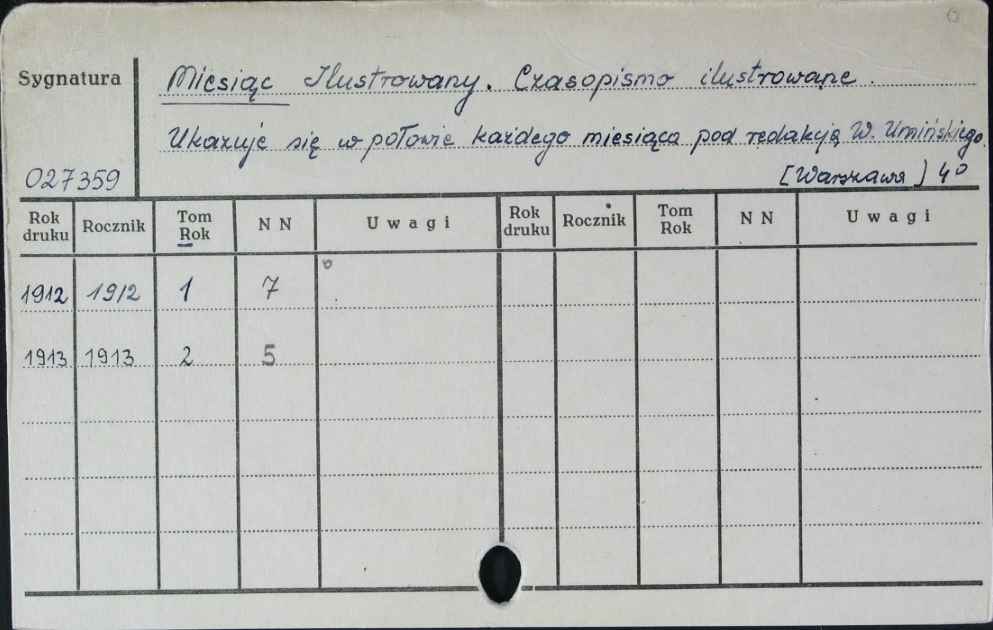 Sygnatura
Miesiąc Ilustrowany. Czasopismo ilustrowane.
Ukazuje się w połowie każdego miesiąca pod redakcją W. Umińskiego.
027359
[Warszawa] 4⁰
Rok druku Rocznik Tom Rok N N Uwagi Rok druku Rocznik Tom Rok N N Uwagi
1912 1912 1 7
1913 1913 2 5